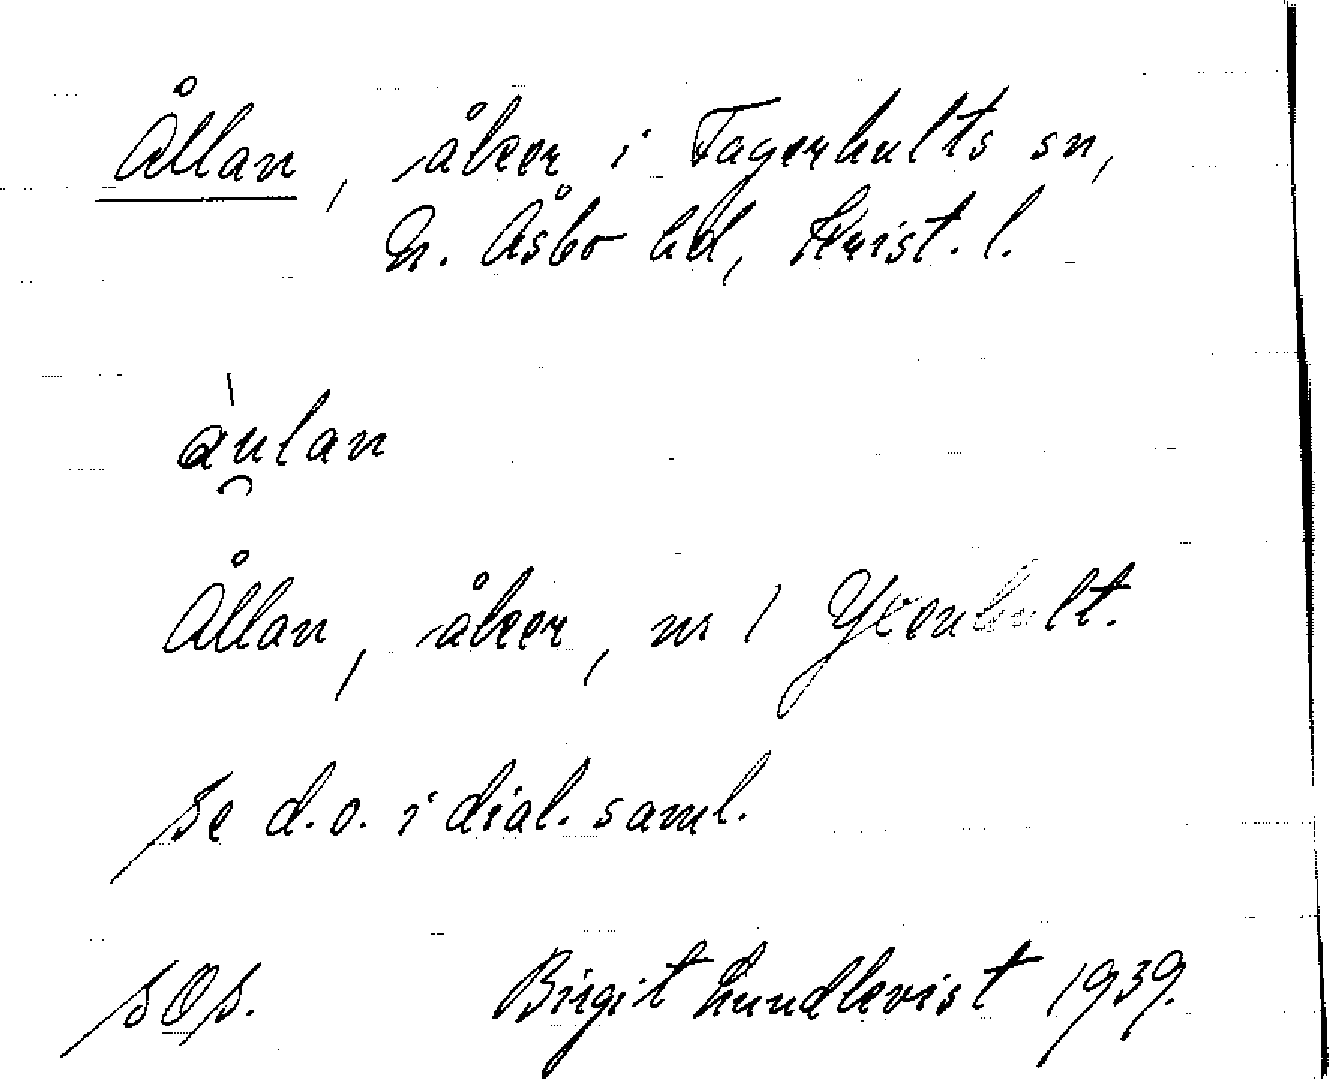 Ållan, åker i Fagerhults sn,
N. Åsbo hd, Krist. l.
àu̯lan
Ållan, åker, nr 1
se d.o. i dial. saml.
Birgit Lundkvist 1939.